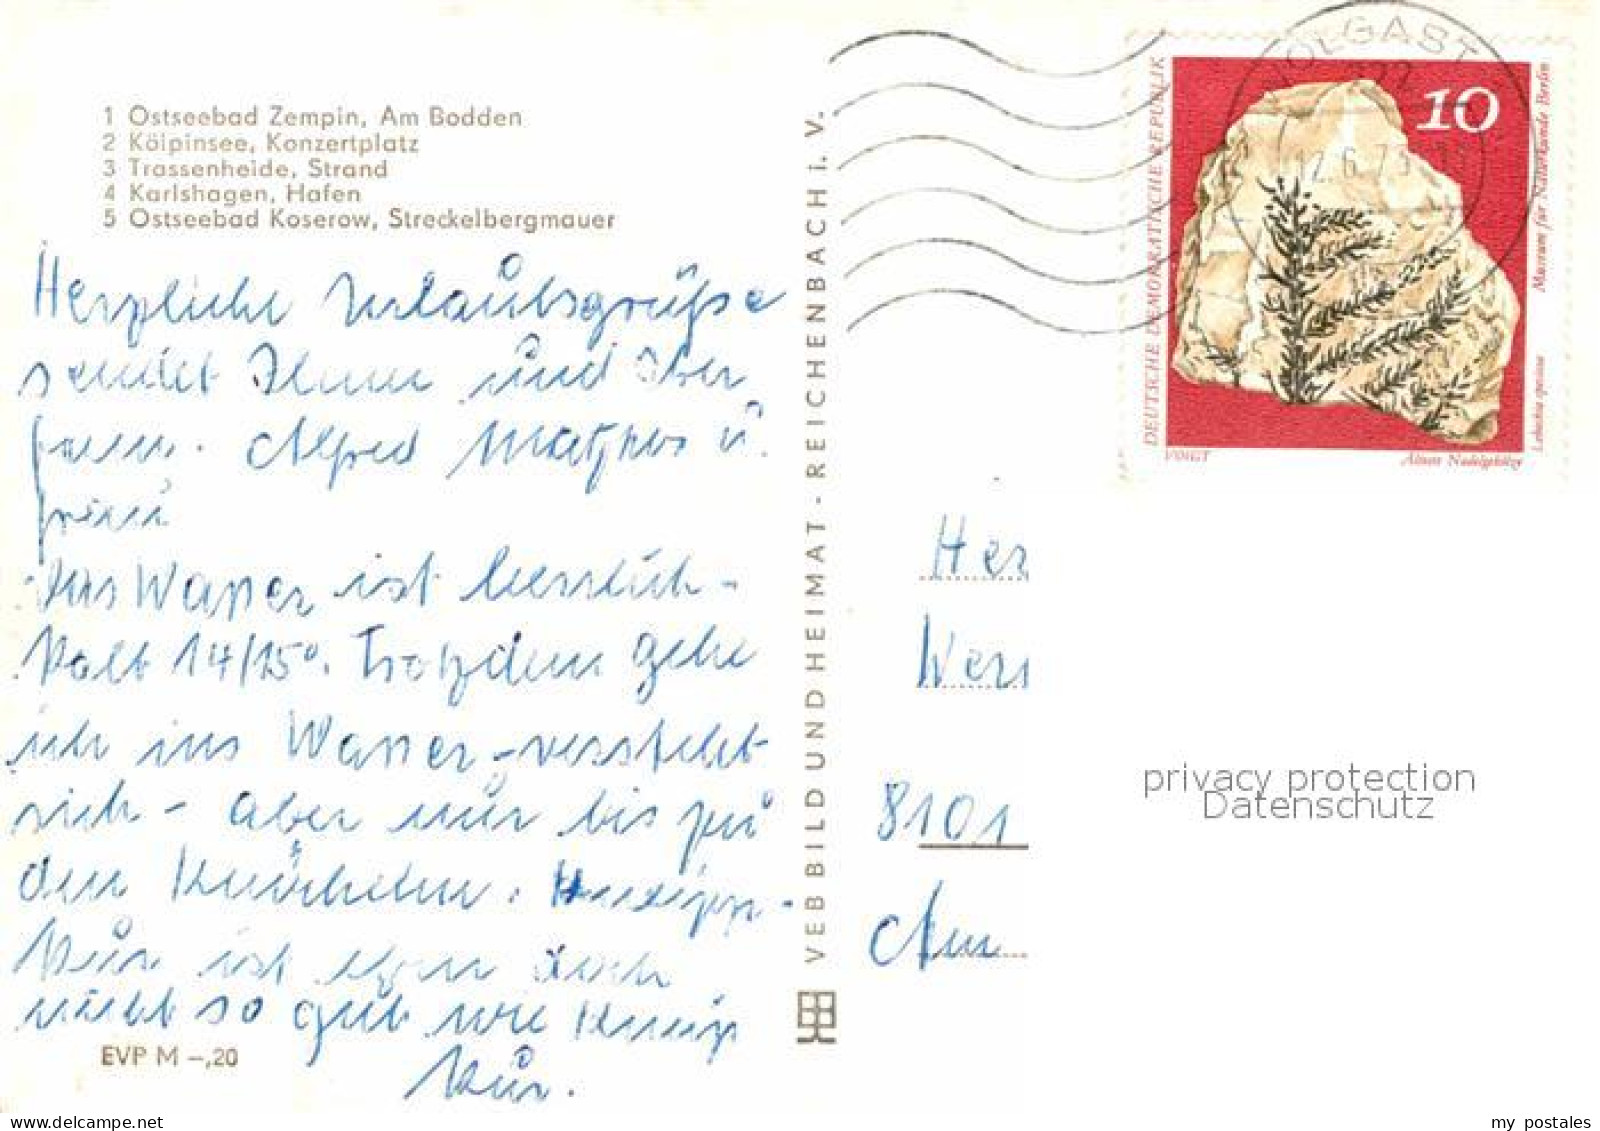 1 Ostseebad Zempin, Am Bodden
2 Kölpinsee, Konzertplatz
3 Trassenheide, Strand
4 Karlshagen, Hafen
5 Ostseebad Koserow, Streckelbergmauer
Herzliche Urlaubsgrüße
sendet Ihnen und
Alfred u.
Frau
Das Wasser ist herrlich -
Kalt 14/15°. Trotzdem gehe
ich ins Wasser - versteht
sich - aber nur bis zu
den Knöcheln. Kneipp-
Kur ist eben doch
nicht so gut wie Kneip
Kur.
EVP M -,20
VEB BILD UND HEIMAT - REICHENBACH i. V.
WOLGAST
12.6.73
DEUTSCHE DEMOKRATISCHE REPUBLIK
10
Museum für Naturkunde Berlin
Lebachia speciosa
VOIGT
Ältest Nadelgehölz
Her
Wern
8101
Am
privacy protection
Datenschutz
my postales